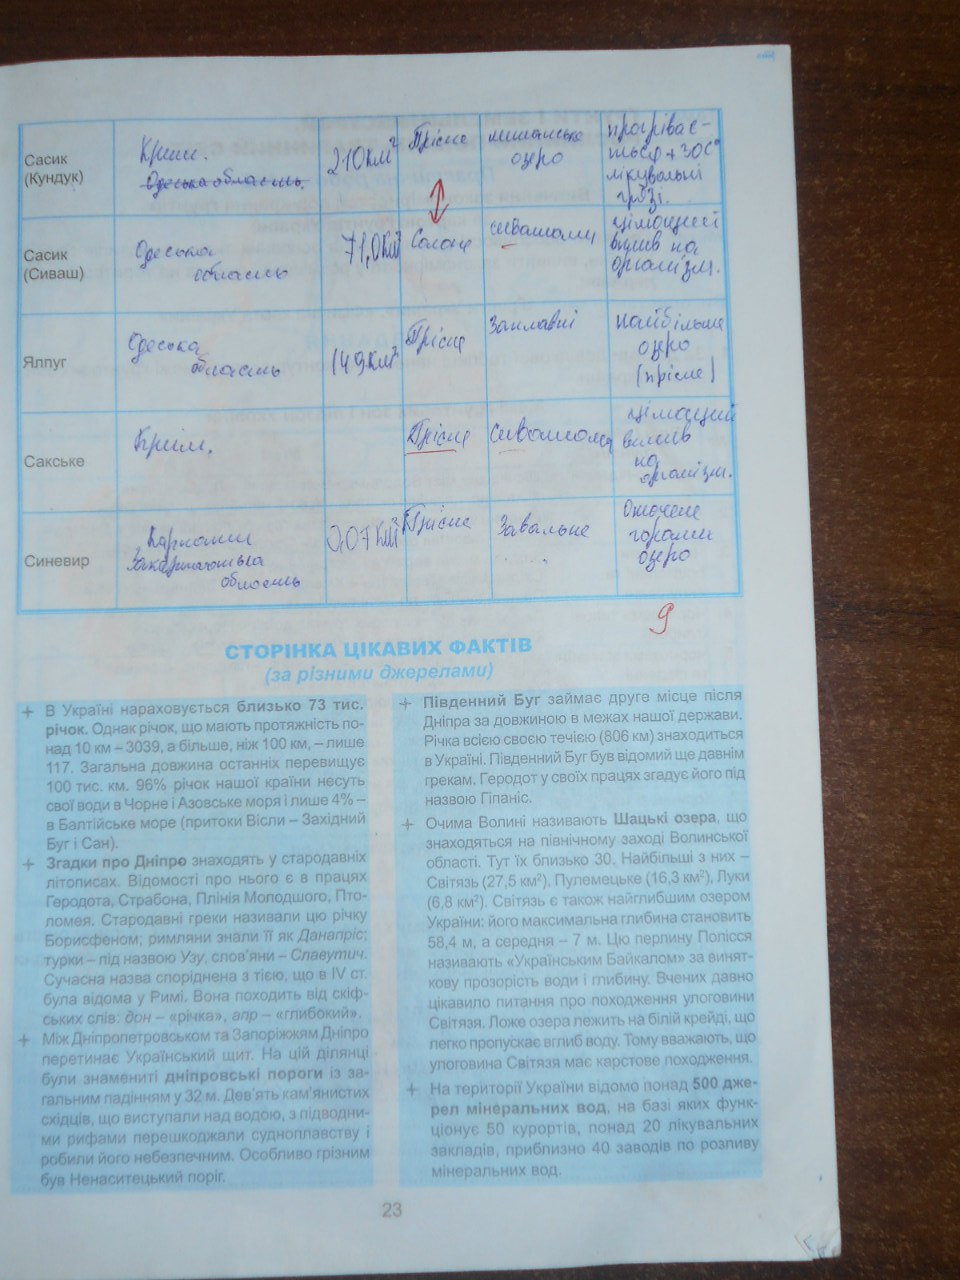 Сасик
(Кундук)
Крим.
Одеська область.
210км²
Прісне
лиманське
озеро
прогріває-
ться +30С°
лікувальні
грязі.
Сасик
(Сиваш)
Одеська
область
71,0км²
Солоне
цілющий
вплив на
організм.
Ялпуг
Одеська
область
149км²
Прісне
Заплавні
найбільше
озеро
(прісне)
Сакське
Крим.
Прісне
цілющий
вплив
на
організм.
Синевир
Карпати
Закарпатська
область
0,07км²
Прісне
Завальне
Оточене
горами
озеро
9
СТОРІНКА ЦІКАВИХ ФАКТІВ
(за різними джерелами)
В Україні нараховується близько 73 тис.
річок. Однак річок, що мають протяжність по-
над 10 км – 3039, а більше, ніж 100 км, – лише
117. Загальна довжина останніх перевищує
100 тис. км. 96% річок нашої країни несуть
свої води в Чорне і Азовське моря і лише 4% –
в Балтійське море (притоки Вісли – Західний
Буг і Сан).
Згадки про Дніпро знаходять у стародавніх
літописах. Відомості про нього є в працях
Геродота, Страбона, Плінія Молодшого, Пто-
ломея. Стародавні греки називали цю річку
Борисфеном; римляни знали її як Данапріс;
турки – під назвою Узу, слов’яни – Славутич.
Сучасна назва споріднена з тією, що в IV ст.
була відома у Римі. Вона походить від скіф-
ських слів: дон – «річка», апр – «глибокий».
Між Дніпропетровськом та Запоріжжям Дніпро
перетинає Український щит. На цій ділянці
були знамениті дніпровські пороги із за-
гальним падінням у 32 м. Дев’ять кам’янистих
східців, що виступали над водою, з підводни-
ми рифами перешкоджали судноплавству і
робили його небезпечним. Особливо грізним
був Ненаситецький поріг.
Південний Буг займає друге місце після
Дніпра за довжиною в межах нашої держави.
Річка всією своєю течією (806 км) знаходиться
в Україні. Південний Буг був відомий ще давнім
грекам. Геродот у своїх працях згадує його під
назвою Гіпаніс.
Очима Волині називають Шацькі озера, що
знаходяться на північному заході Волинської
області. Тут їх близько 30. Найбільші з них –
Світязь (27,5 км²), Пулемецьке (16,3 км²), Луки
(6,8 км²). Світязь є також найглибшим озером
України: його максимальна глибина становить
58,4 м, а середня – 7 м. Цю перлину Полісся
називають «Українським Байкалом» за винят-
кову прозорість води і глибину. Вчених давно
цікавило питання про походження улоговини
Світязя. Ложе озера лежить на білій крейді, що
легко пропускає вглиб воду. Тому вважають, що
улоговина Світязя має карстове походження.
На території України відомо понад 500 дже-
рел мінеральних вод, на базі яких функ-
ціонує 50 курортів, понад 20 лікувальних
закладів, приблизно 40 заводів по розливу
мінеральних вод.
23